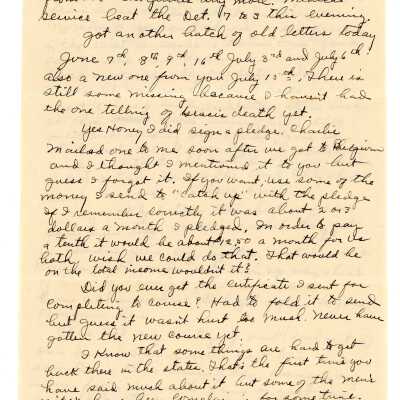 any more.
service beat the Det. 7 to 3 this evening.
Got another batch of old letters today
June 7th, 8th, 9th, 16th July 3rd and July 6th.
also a new one from you July 15th. There is
still some missing because I haven't had
the one telling of Bessie's death yet.
Yes Honey, I did sign a pledge. Charlie
mailed one to me soon after we got to Belgium
and I thought I mentioned it to you but
guess I forgot it. If you want, use some of the
money I send to "catch up" with the pledge
If I remember correctly it was about 2 or 3
dollars a month I pledged. In order to pay
a tenth it would be about 12.50 a month for us
both, wish we could do that. That would be
on the total income wouldn't it?
Did you ever get the certificate I sent for
completing to course? Had to fold it to send
but guess it wasn't hurt too much. Never have
gotten the new course yet.
I know that some things are hard to get
back there in the states. That's the first time you
have said much about it but some of the men's
for some time.